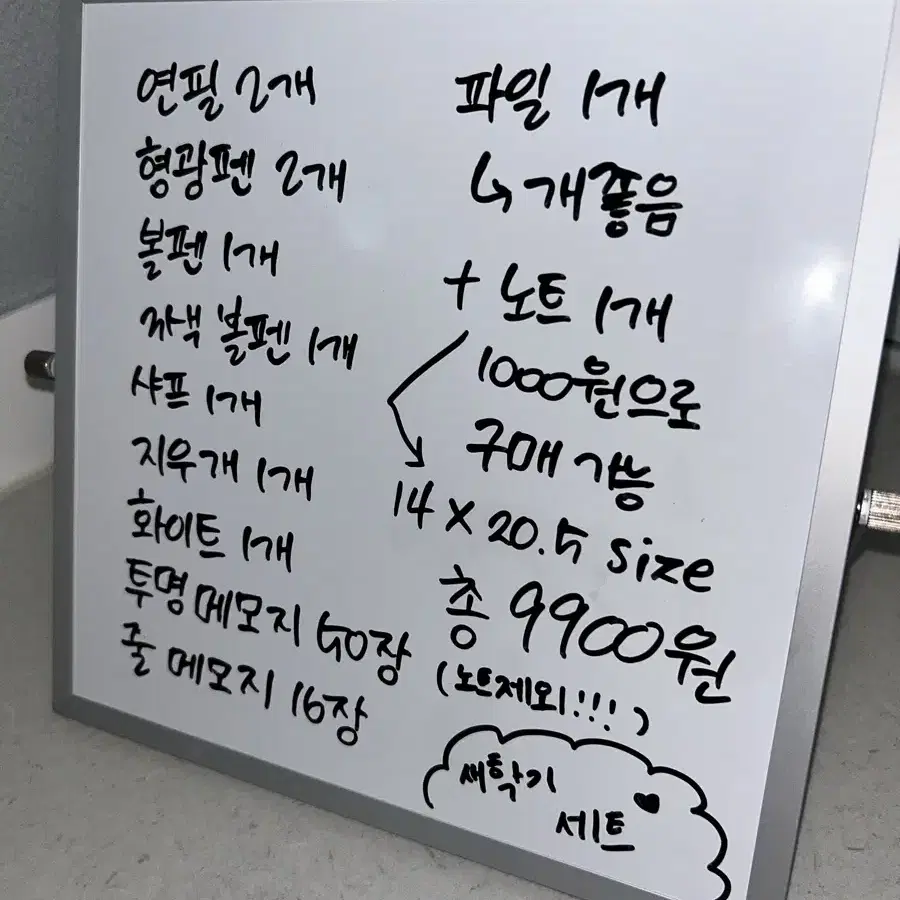 연필 2개
형광펜 2개
볼펜 1개
자색 볼펜 1개
샤프 1개
지우개 1개
화이트 1개
투명 메모지 50장
줄 메모지 16장
파일 1개
↳ 개좋음
+ 노트 1개
1000원으로
구매 가능
14 x 20.5 size
총 9900원
(노트제외!!!)
새학기
세트